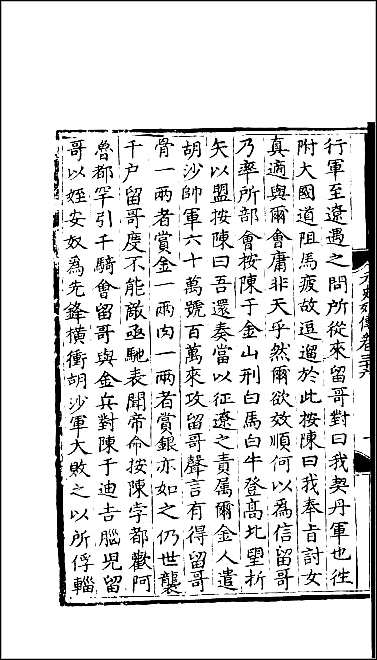 行軍至遼遇之問所從來留哥對曰我契丹軍也徃
附大國道阻馬疲故逗遛於此按陳曰我奉旨討女
真適與爾會庸非天乎然爾欲效順何以為信留哥
乃率所部會按陳于金山刑白馬白牛登高北望折
矢以盟按陳曰吾還奏當以征遼之責属爾金人遣
胡沙帥軍六十萬號百萬來攻留哥聲言有得留哥
骨一兩者賞金一兩肉一兩者賞銀亦如之仍世襲
千户留哥度不能敵亟馳表聞帝命按陳孛都歡阿
魯都罕引千騎會留哥與金兵對陳于迪吉腦児留
哥以姪安奴為先鋒橫衝胡沙軍大敗之以所俘輜